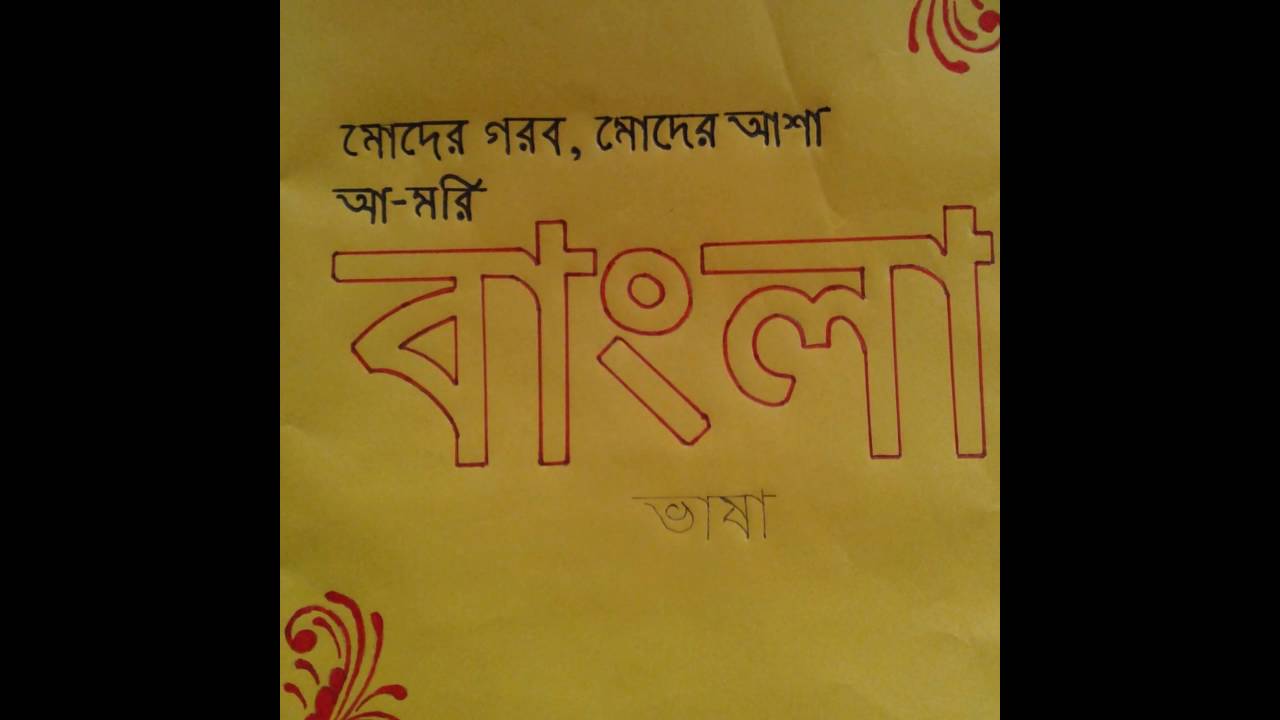 মোদের গরব, মোদের আশা
আ-মরি
বাংলা
ভাষা